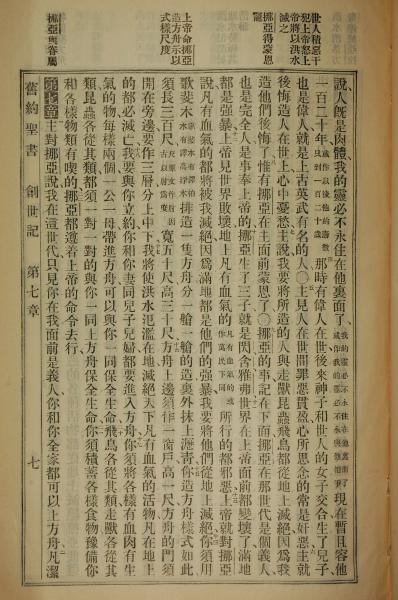 世人積惡干
犯上帝怒上
帝將以洪水
滅之
挪亞得蒙恩
寵
上帝命挪亞
造方舟示以
式樣尺度
挪亞與眷屬
說人既是肉體我的靈必不永住在他裏面了現在暫且容他
一百二十年或作以後他的壽數只到一百二十歲那時有偉人在世後來神子和世人的女子交合生了兒子
也是偉人就是上古英武有名的人○主見人在世間罪惡貫盈心所思念的常是奸惡主就
後悔造人在世上心中憂愁主說我要將所造的人與走獸昆蟲飛鳥都從地上滅絕因爲我
造他們後悔了惟有挪亞在主面前蒙恩了○挪亞的事記在下面挪亞在那世代是個義人
也是完全人是事奉上帝的挪亞生了三子就是閃含雅弗世界在上帝面前都變壞了滿地
都是強暴上帝見世界敗壞地上凡有血氣的凡有血氣的或作萬民下同所行的都邪惡上帝就對挪亞
說凡有血氣的都將被我滅絕因爲滿地都是他們的強暴我要將他們從地上滅絕你須用
歌斐木排造一隻方舟分一艙一艙的造裏外抹上瀝青你造方舟樣式如此
須長三百尺尺原文作肘因古以肘爲度寬五十尺高三十尺方舟上邊須作一窗戶高一尺方舟的門須
開在旁邊要作三層分上中下我將使洪水氾濫在地滅絕天下凡有血氣的活物凡在地上
的都必滅亡我要與你立約你和你妻同兒子兒婦都要進入方舟你須將各樣有血肉有生
氣的物每樣兩個一公一母帶進方舟可以與你一同保全生命飛鳥各從其類走獸各從其
類昆蟲各從其類都須一對一對的與你一同上方舟保全生命你須積蓄各樣食物豫備你
和各樣物類有喫的挪亞都遵着上帝的命令去行
第七章主對挪亞說我在這世代只見你在我面前是義人你和你全家都可以上方舟凡潔
舊約聖書 創世記 第七章 七